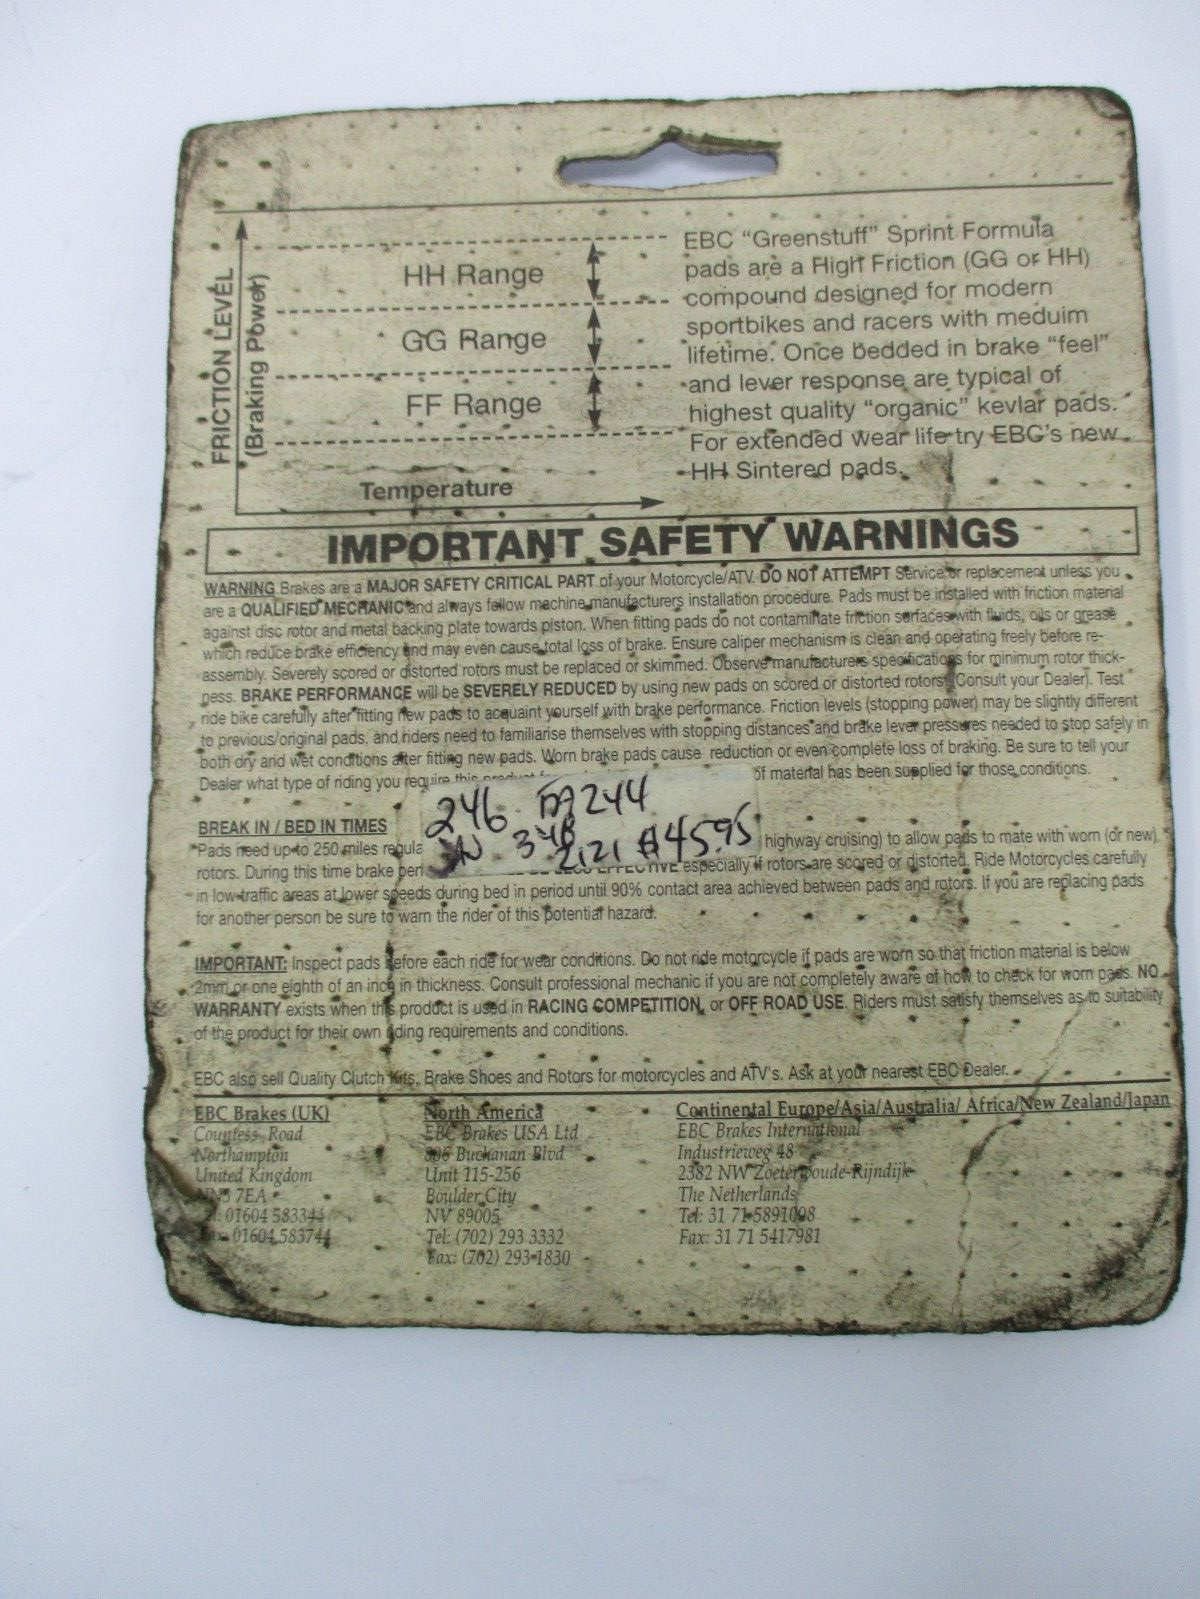 FRICTION LEVEL
(Braking Power)
HH Range
GG Range
FF Range
Temperature
EBC “Greenstuff” Sprint Formula
pads are a High Friction (GG or HH)
compound designed for modern
sportbikes and racers with meduim
lifetime. Once bedded in brake “feel”
and lever response are typical of
highest quality “organic” kevlar pads.
For extended wear life try EBC's new
HH Sintered pads.
IMPORTANT SAFETY WARNINGS
WARNING Brakes are a MAJOR SAFETY CRITICAL PART of your Motorcycle/ATV. DO NOT ATTEMPT Service or replacement unless you
are a QUALIFIED MECHANIC and always follow machine manufacturers installation procedure. Pads must be installed with friction material
against disc rotor and metal backing plate towards piston. When fitting pads do not contaminate friction surfaces with fluids, oils or grease
which reduce brake efficiency and may even cause total loss of brake. Ensure caliper mechanism is clean and operating freely before re-
assembly. Severely scored or distorted rotors must be replaced or skimmed. Observe manufacturers specifications for minimum rotor thick-
ness. BRAKE PERFORMANCE will be SEVERELY REDUCED by using new pads on scored or distorted rotors (Consult your Dealer). Test
ride bike carefully after fitting new pads to acquaint yourself with brake performance. Friction levels (stopping power) may be slightly different
to previous/original pads, and riders need to familiarise themselves with stopping distances and brake lever pressures needed to stop safely in
both dry and wet conditions after fitting new pads. Worn brake pads cause reduction or even complete loss of braking. Be sure to tell your
Dealer what type of riding you require this product of material has been supplied for those conditions.
246 FA244
346
2121 $45.95
BREAK IN / BED IN TIMES
Pads need up to 250 miles regula highway cruising) to allow pads to mate with worn (or new)
rotors. During this time brake per EFFECTIVE especially if rotors are scored or distorted. Ride Motorcycles carefully
in low traffic areas at lower speeds during bed in period until 90% contact area achieved between pads and rotors. If you are replacing pads
for another person be sure to warn the rider of this potential hazard.
IMPORTANT: Inspect pads before each ride for wear conditions. Do not ride motorcycle if pads are worn so that friction material is below
2mm or one eighth of an inch in thickness. Consult professional mechanic if you are not completely aware of how to check for worn pads. NO
WARRANTY exists when this product is used in RACING COMPETITION, or OFF ROAD USE. Riders must satisfy themselves as to suitability
of the product for their own riding requirements and conditions.
EBC also sell Quality Clutch Kits, Brake Shoes and Rotors for motorcycles and ATV's. Ask at your nearest EBC Dealer.
EBC Brakes (UK)
Countess Road
Northampton
United Kingdom
NN5 7EA
Tel: 01604 583344
Fax: 01604 583744
North America
EBC Brakes USA Ltd
806 Buchanan Blvd
Unit 115-256
Boulder City
NV 89005
Tel: (702) 293 3332
Fax: (702) 293-1830
Continental Europe/Asia/Australia/ Africa/New Zealand/Japan
EBC Brakes International
Industrieweg 48
2382 NW Zoeterwoude-Rijndijk
The Netherlands
Tel: 31 71 5891098
Fax: 31 71 5417981